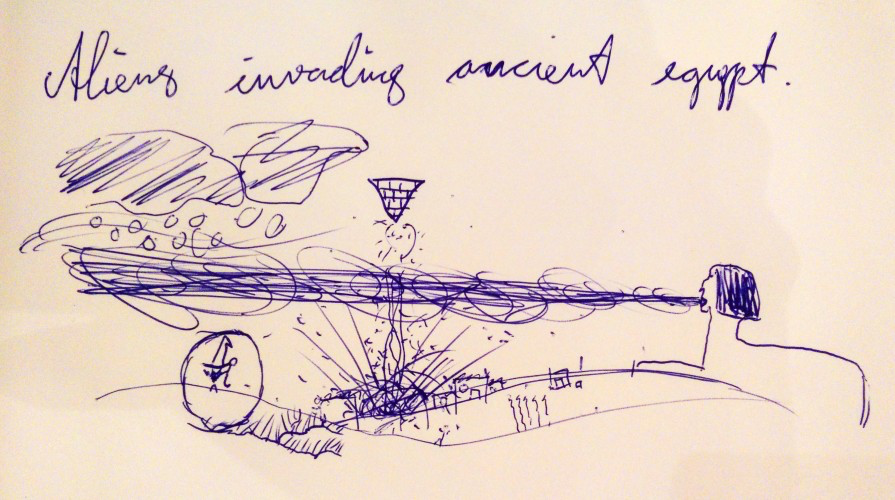 Aliens invading ancient egypt.